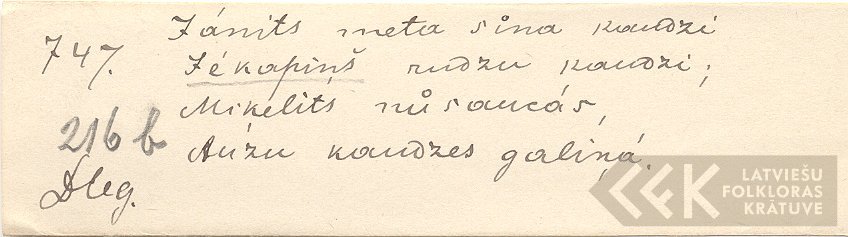 747.
Jánits meta sína kaudzi
Jékapiņš rudzu kaudzi;
Mikelits nůsaucás,
Aúzu kaudzes galiņá.
216 b
LATVIEŠU
FOLKLORAS
KRĀTUVE